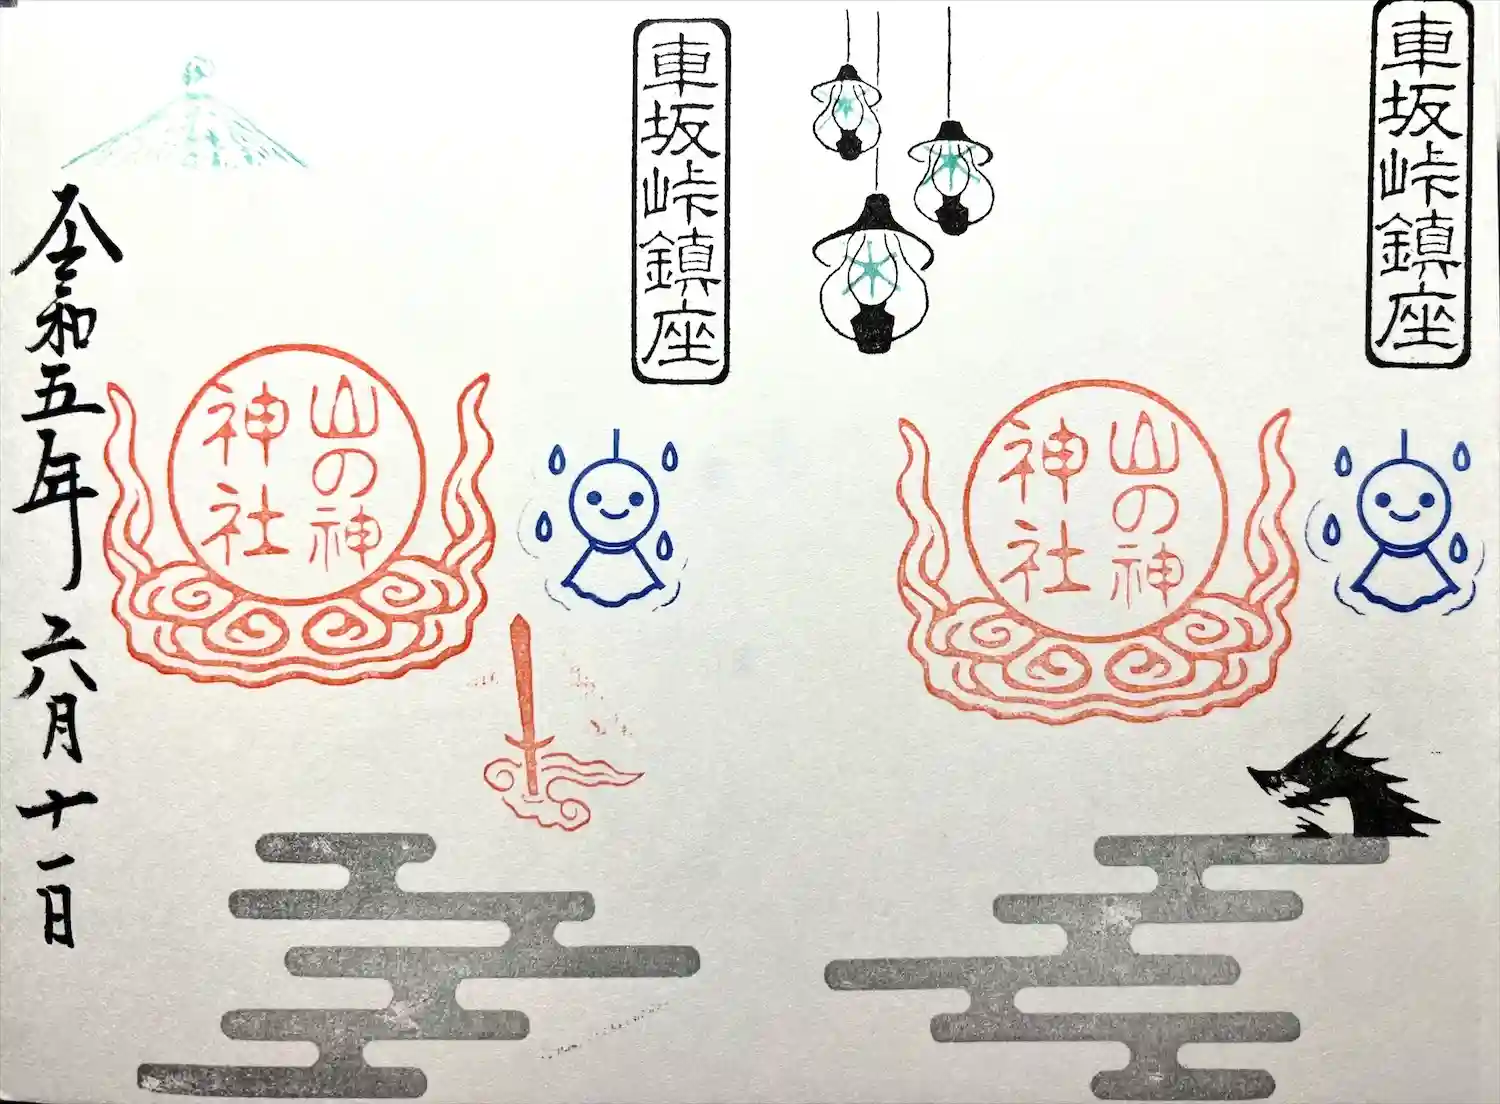 車坂峠鎮座
山の神
神社
車坂峠鎮座
山の神
神社
令和五年六月十一日